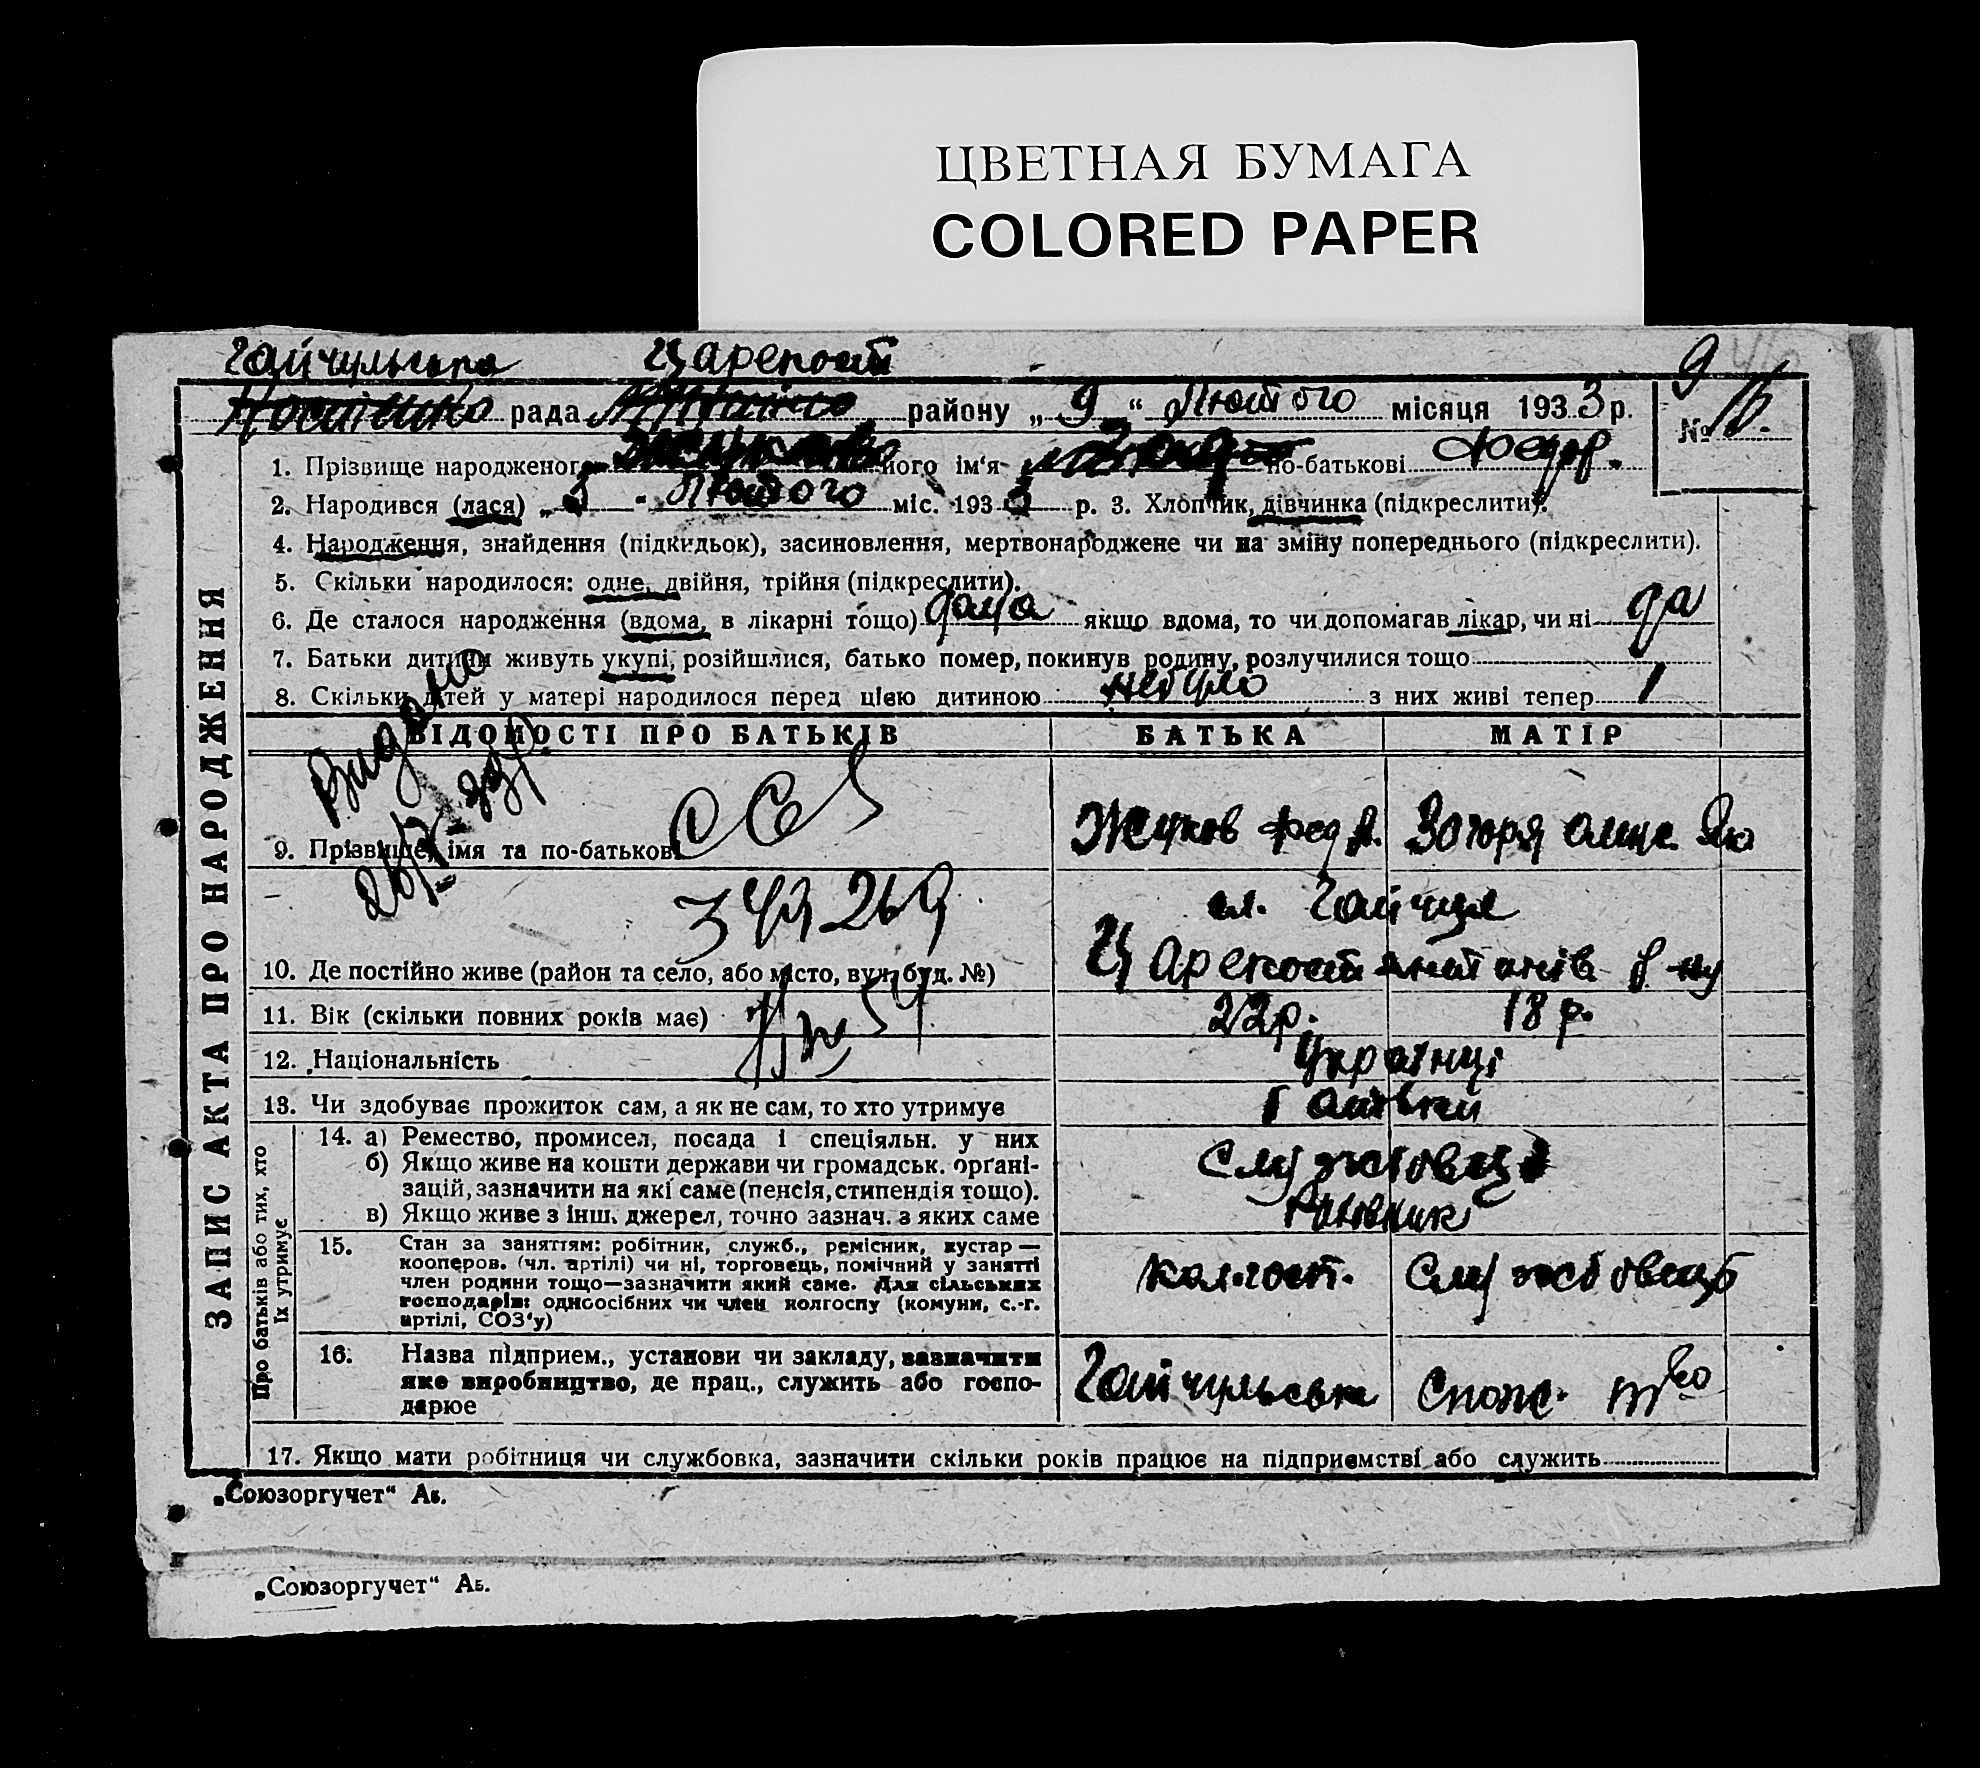 ЦВЕТНАЯ БУМАГА
COLORED PAPER
Гайчульська Царепост
рада району „ 9 “ Лютого місяця 1933 р.
9
№ 16.
1. Прізвище народженого його ім'я по-батькові Федор.
2. Народився (лася) „ “ Лютого міс. 193 р. 3. Хлопчик, дівчинка (підкреслити).
4. Народження, знайдення (підкидьок), засиновлення, мертвонароджене чи на зміну попереднього (підкреслити).
5. Скільки народилося: одне, двійня, трійня (підкреслити).
6. Де сталося народження (вдома, в лікарні тощо) дома якщо вдома, то чи допомагав лікар, чи ні да
7. Батьки дитини живуть укупі, розійшлися, батько помер, покинув родину, розлучилися тощо
8. Скільки дітей у матері народилося перед цією дитиною небуло з них живі тепер 1
ЗАПИС АКТА ПРО НАРОДЖЕННЯ
ВІДОМОСТІ ПРО БАТЬКІВ БАТЬКА МАТІР
Видано
9. Прізвище, імя та по-батькові Жуков Фед
с. Гайчул
10. Де постійно живе (район та село, або місто, вул. буд. №)
11. Вік (скільки повних років має) 22р. 18 р.
12. Національність Українці
13. Чи здобуває прожиток сам, а як не сам, то хто утримує
Про батьків або тих, хто їх утримує
14. а) Ремество, промисел, посада і спеціяльн. у них
б) Якщо живе на кошти держави чи громадськ. організацій, зазначити на які саме (пенсія, стипендія тощо).
в) Якщо живе з інш. джерел, точно зазнач. з яких саме
15. Стан за заняттям: робітник, служб., ремісник, кустар —
кооперов. (чл. артілі) чи ні, торговець, помічний у занятті
член родини тощо—зазначити який саме. Для сільських
господарів: одноосібних чи член колгоспу (комуни, с.-г.
артілі, СОЗ'у)
колгосп. Службовець
16. Назва підприєм., установи чи закладу, зазначити
яке виробництво, де прац., служить або господарює
Гайчульське Спож. т-во
17. Якщо мати робітниця чи службовка, зазначити скільки років працює на підприємстві або служить
„Союзоргучет“ Аб.
„Союзоргучет“ Аб.